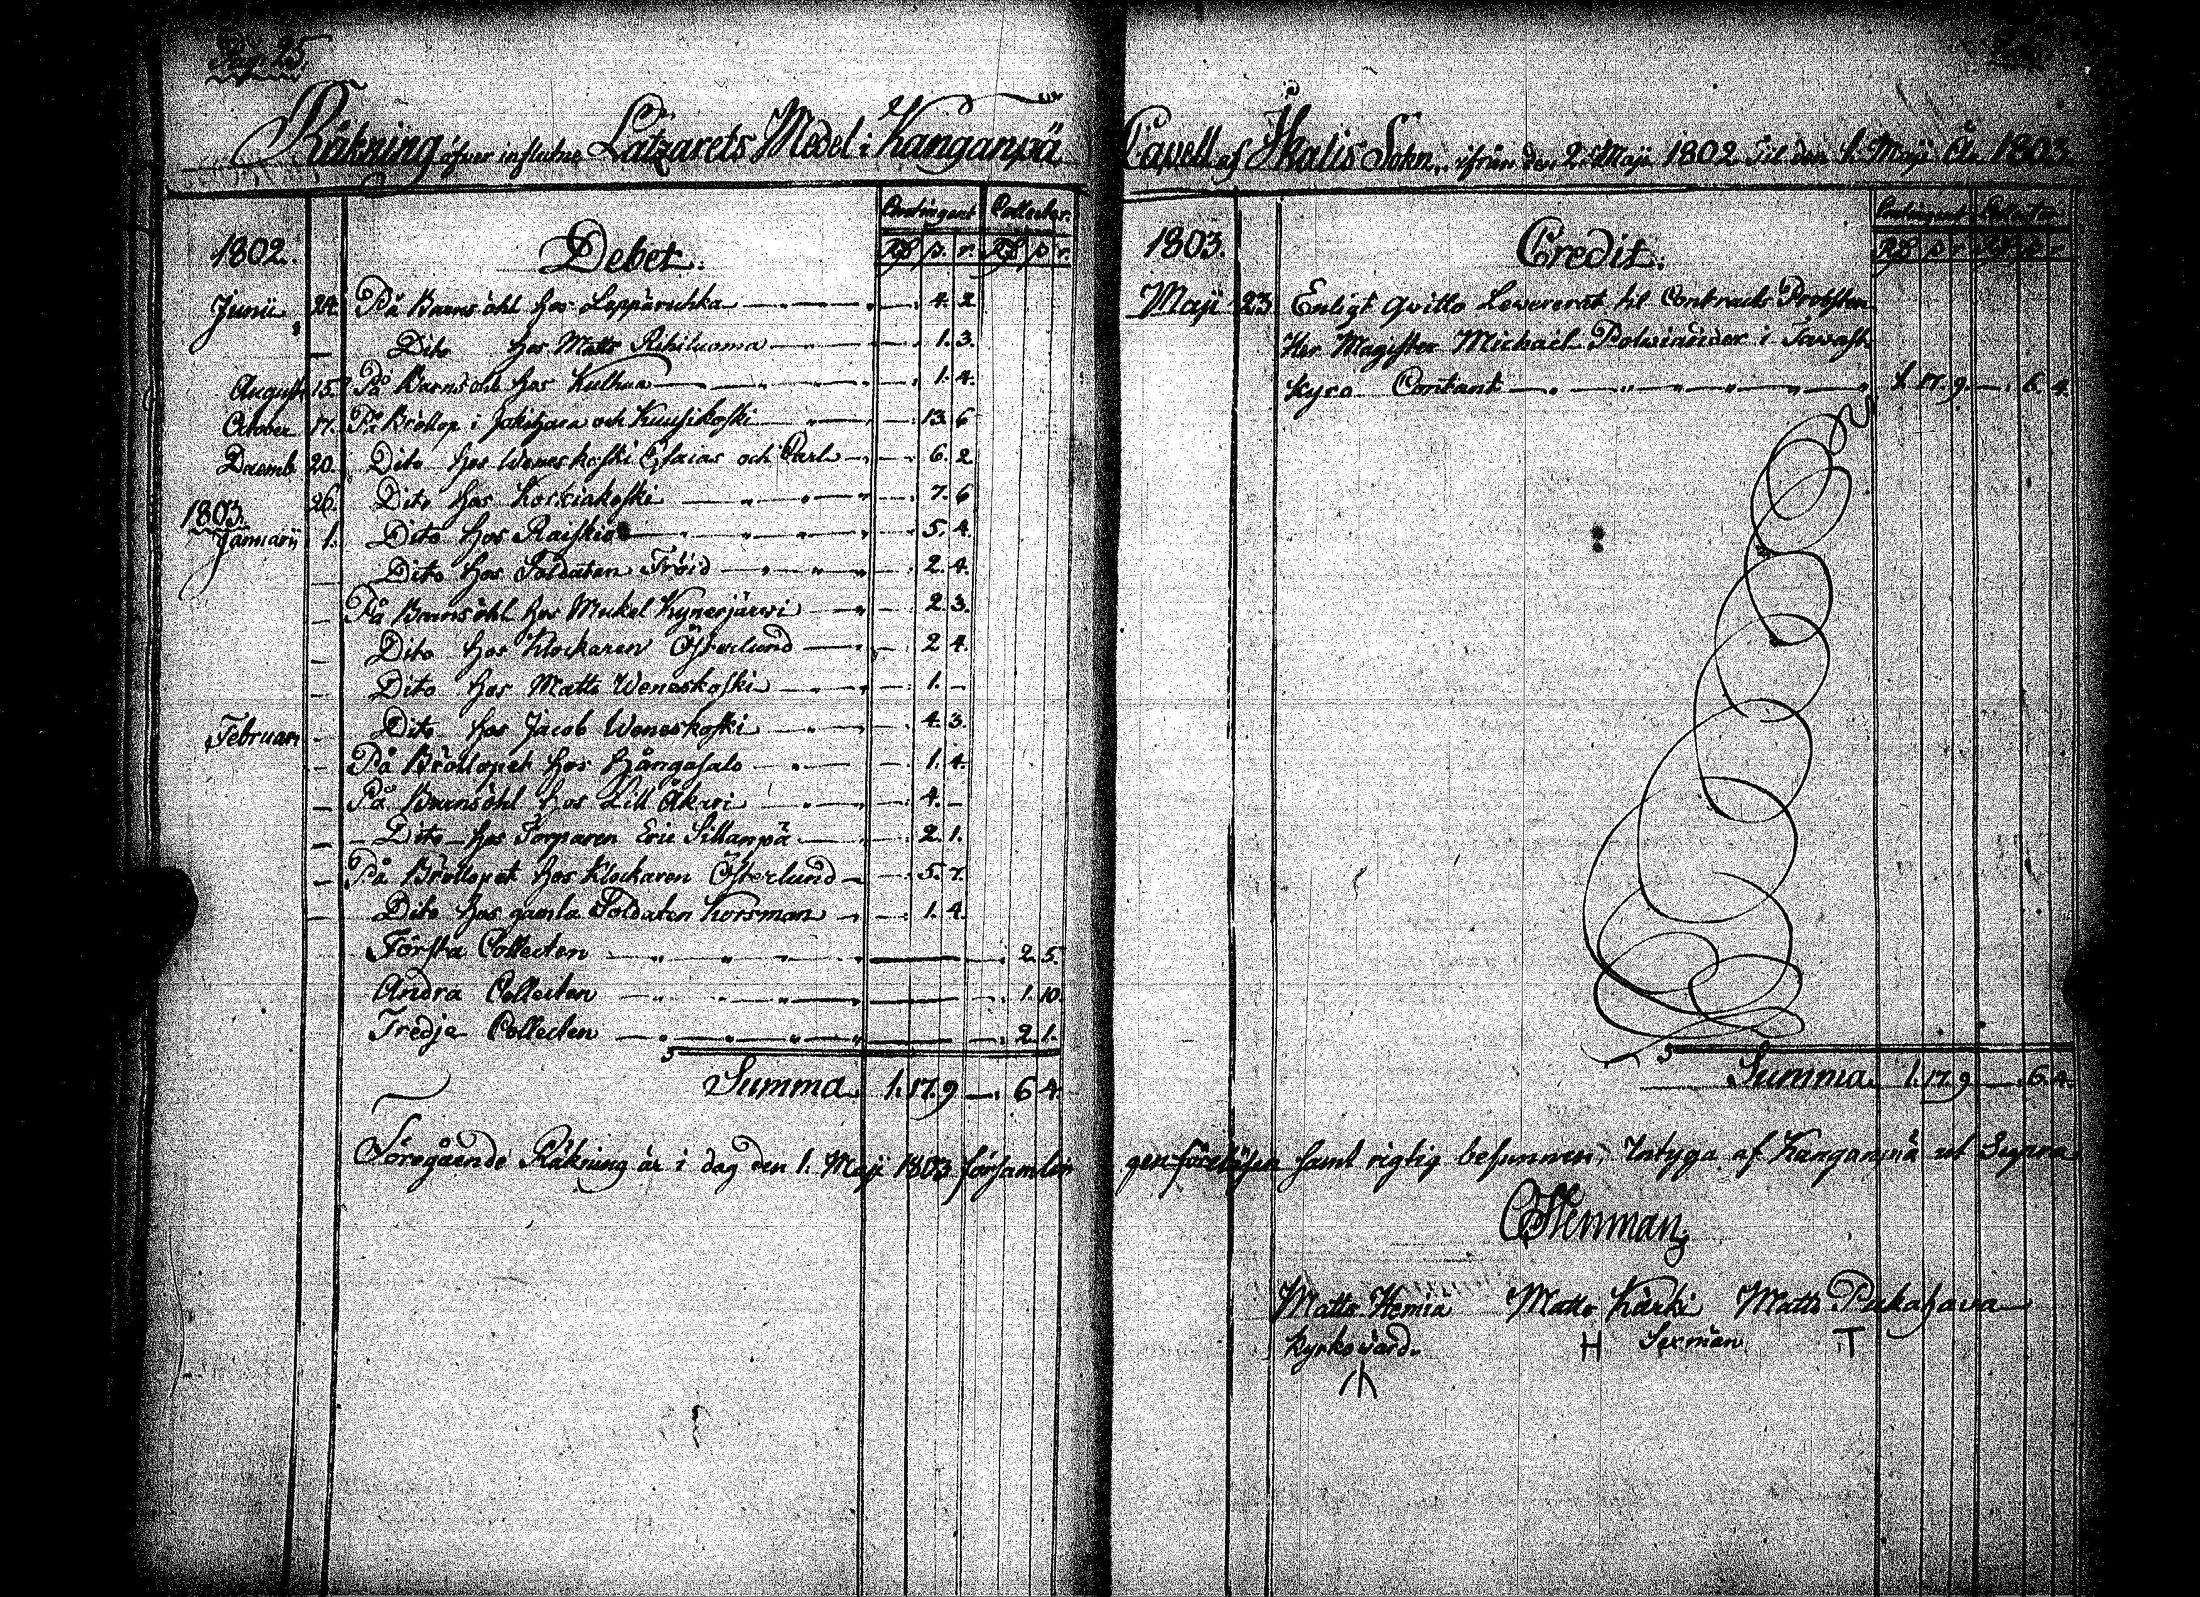 Pag. 25.
Räkning öfver influtne Latzarets Medel i Kanganpä
Debet.
Contingent Collecter.
Rd s. r. Rd s r.
1802.
Junii 24. På Barnsöhl hos Leppäruhka — 4. 2
— Dito hos Matts Rihiluoma — 1. 3.
August 15. På Barnsöhl hos Kulhua — 1. 4.
October 17. På Bröllop i Jokihara och Kuusikoski — 13. 6
Decemb. 20. Dito hos Weneskoski Esaias och Carl — 6. 2
26. Dito hos Koskiakoski — 7. 6
1803.
Januarii 1. Dito hos Raiskio — 5. 4.
— Dito hos Soldaten Fröid — 2. 4.
— På Barnsöhl hos Mickel Kynerjärvi — 2 3.
— Dito hos Klockaren Österlund — 2 4.
— Dito hos Matts Weneskoski — 1. —
Februarii — Dito hos Jacob Weneskoski — 4. 3.
— På Bröllopet hos Hångasalo — 1. 4.
— På Barnsöhl hos Lill Åkeri — 4. —
— Dito hos Torparen Eric Sillanpä — 2. 1.
— På Bröllopet hos Klockaren Österlund — 5. 7.
— Dito hos gamla Soldaten Korsman — 1. 4.
Första Collecten — 2. 5.
Andra Collecten — 1. 10.
Tredje Collecten — 2. 1.
Summa 1. 17. 9 — 6 4.
Föregående Räkning är i dag den 1. Maji 1803 församlin
Capell af Ikalis Sokn, ifrån den 2. Maji 1802 til den 1. Maji År 1803.
Credit.
Contingent Collecter
Rd s r Rd s r
1803.
Maji 23. Enligt qvitto Levererat til Contracts Probsten
Her Magister Michaël Polviander i Tavast
kyro Contant — 1. 17. 9. — 6. 4.
Summa 1. 17. 9 — 6. 4.
gen föreläsen samt rigtig befunnen, Intyga af Kanganpä ut Supra
C Stenman
Matts Hemia Matts Kärki Matts Pukahara
Kyrkovärd. H Sexmän T